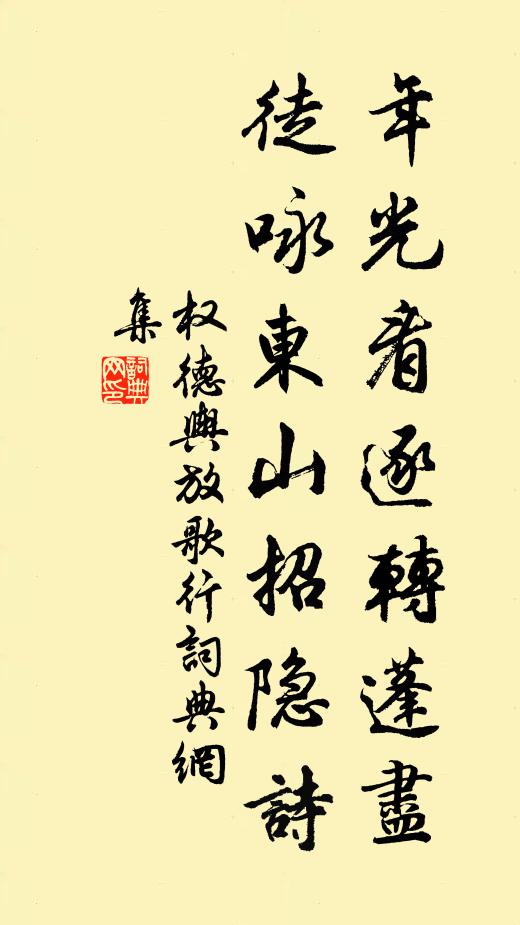 年光看逐轉蓬盡
徒咏東山招隐詩
权德輿放歌行詞典網
集
詞典网印